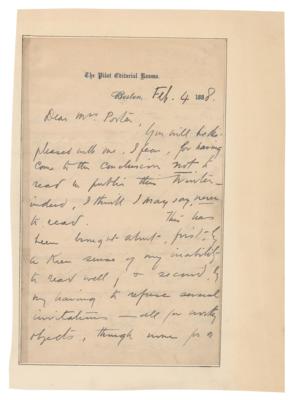 The Pilot Editorial Rooms.
Boston, Feb. 4 1888.
Dear Mrs Porter,
You will be dis-
pleased with me, I fear, for having
come to the conclusion not to
read in public this Winter-
indeed, I think I may say, never
to read. This has
been brought about, first, by
a keen sense of my inability
to read well, & second, by
my having to refuse several
invitations — all for worthy
objects, though none for a